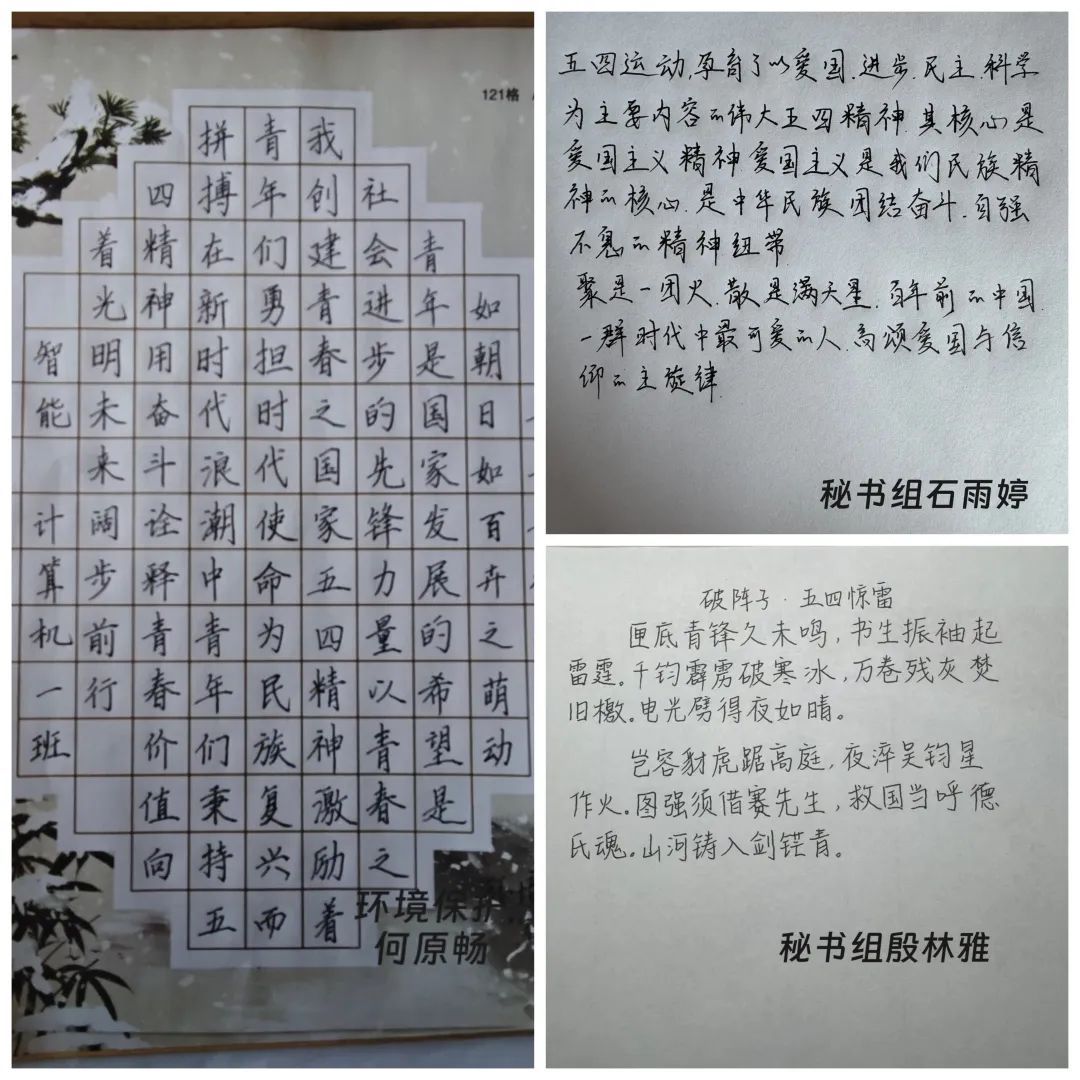 121格
如朝日如百卉之萌动
青年是国家发展的希望是
社会进步的先锋力量以青春之
我创建青春之国家五四精神激励着
青年们勇担时代使命为民族复兴而
拼搏在新时代浪潮中青年们秉持五
四精神用奋斗诠释青春价值向
着光明未来阔步前行
智能 计算机一班
环境保护
何原畅
五四运动,孕育了以爱国.进步.民主.科学
为主要内容的伟大五四精神.其核心是
爱国主义精神爱国主义是我们民族精
神的核心.是中华民族团结奋斗.自强
不息的精神纽带
聚是一团火.散是满天星.百年前的中国.
一群时代中最可爱的人.高颂爱国与信
仰的主旋律.
秘书组石雨婷
破阵子·五四惊雷
匣底青锋久未鸣,书生振袖起
雷霆。千钧霹雳破寒冰,万卷残灰焚
旧檄。电光劈得夜如晴。
岂容豺虎踞高庭,夜淬吴钧星
作火。图强须借赛先生,救国当呼德
氏魂。山河铸入剑铓青。
秘书组殷林雅